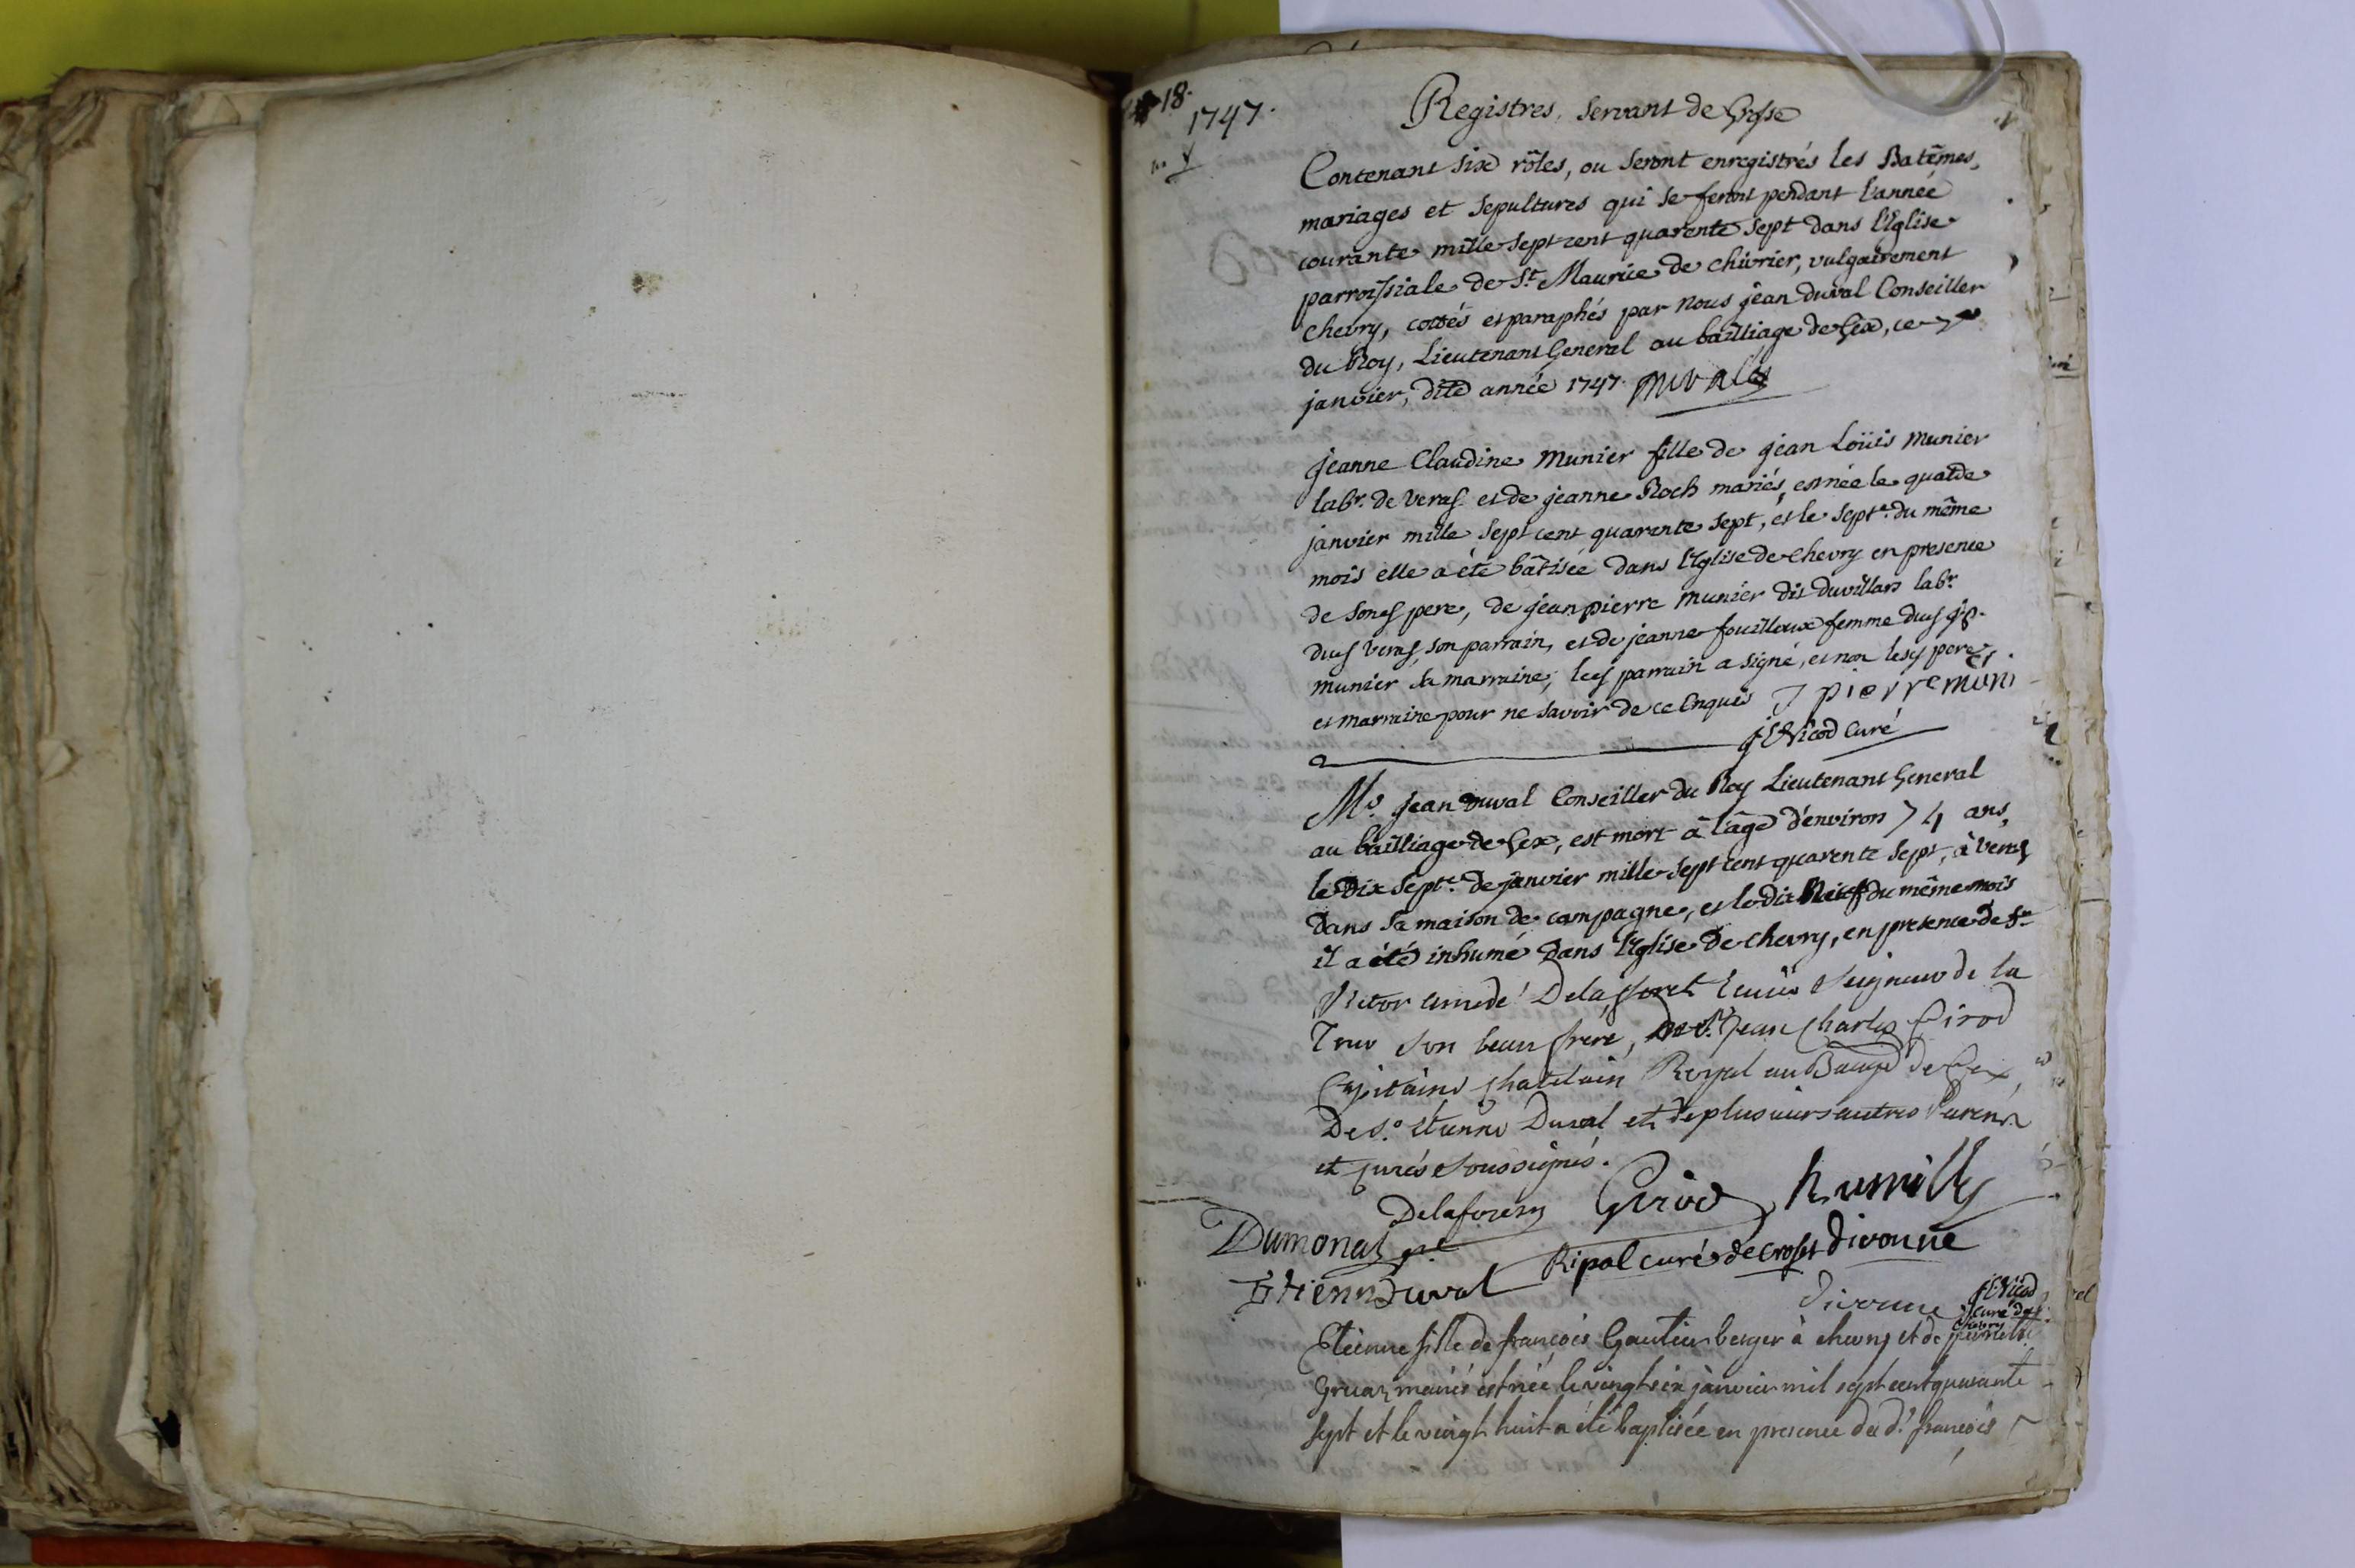 18.
1747.
Registres, servant de
Contenant six rôles, ou seront enregistrés les Batêmes,
mariages et sepultures qui se feront pendant l'année
courante mille sept cent quarente sept dans l'Eglise
parroissiale de St Maurice de chivrier, vulgairement
chevry, cottés et paraphés par nous jean duval Conseiller
du Roy, Lieutenant General au bailliage de Gex, ce
janvier, dite année 1747. Duval
jeanne Claudine Munier fille de jean Loüis Munier
labr. de veraz et de jeanne Roch mariés, est née le quatde
janvier mille sept cent quarente sept, et le septe. du même
mois elle a été bâtisée dans l'Eglise de chevry en presence
de sond pere, de jean pierre Munier dit duvillars labr.
dud veraz, son parrain, et de jeanne fouilloux femme dud jp.
munier sa marraine; led parrain a signé, et non lesd pere
et marraine pour ne savoir de ce Enquis J pierre muni
Nicod Curé
Mr. Jean Duval Conseiller du Roy Lieutenant General
au bailliage de Gex, est mort à l'âge d'environ 74 ans,
le dix septe. de janvier mille sept cent quarente sept, à veraz
dans sa maison de campagne, et le dix Neuf du même mois
il a été inhumé dans l'Eglise de chevry, en presence de Sr
Victor amedé Delaforet Seigneur de la
son beau frere, de Sr. Jean Charles Girod
Capitaine chatelain Royal au de Gex,
De Sr. Etienne Duval et de plusieurs autres Parens
et curés soussignés.
Delaforest Girod Rumilly
Dumonal
Ripal curé de croset divonne
Etienne Duval
divonne Nicod
Curé de
Chevry
Etienne fille de françois Gautier berger à chevry et de pernette
Gruaz mariés est née le vingt six janvier mil sept cent quarante
sept et le vingt huit a été baptisée en presence du d. françois